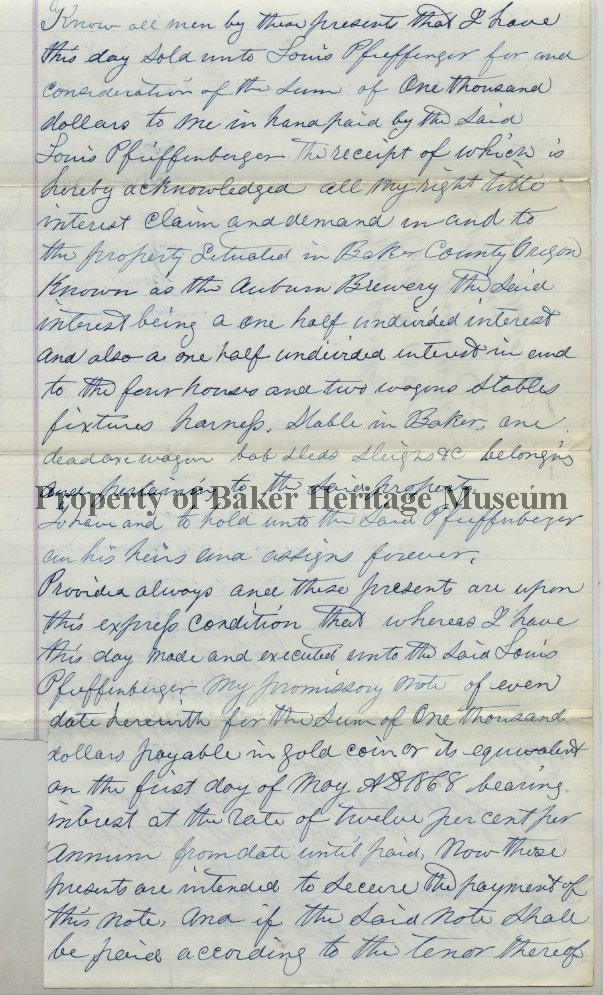 Know all men by these presents that I have
this day sold unto Louis Pfeiffenger for and
consideration of the sum of One thousand
dollars to me in hand paid by the said
Louis Pfeiffenberger the receipt of which is
hereby acknowledged all my right title
interest claim and demand in and to
the property situated in Baker County Oregon
Known as the Auburn Brewery the said
interest being a one half undivided interest
and also a one half undivided interest in and
to the four horses and two wagons stables
fixtures harness. Stable in Baker, one
dead axe wagon bob sleds sleighs &c belonging
and pertaining to the said property
Property of Baker Heritage Museum
To have and to hold unto the said Pfeiffenberger
his heirs and assigns forever.
Provided always and these presents are upon
this express condition that whereas I have
this day made and executed unto the said Louis
Pfeiffenberger my promissory note of even
date herewith for the sum of One thousand
dollars payable in gold coin or its equivalent
on the first day of May AD 1868 bearing
interest at the rate of twelve per cent per
annum from date until paid, Now these
presents are intended to secure the payment of
this note, And if the said note shall
be paid according to the tenor thereof